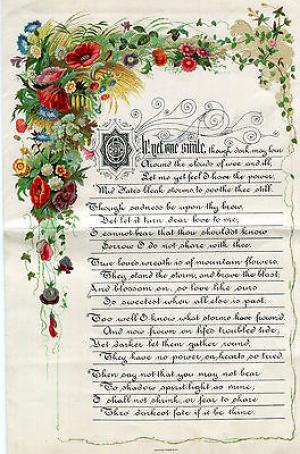 Oh yet one smile, though dark may lour
Around the clouds of woe and ill,
Let me yet feel I have the power,
Mid Fates bleak storms, to soothe thee still.
Though sadness be upon thy brow,
Yet let it turn dear love to me,
I cannot bear that thou shouldst know
Sorrow I do not share with thee.
True love's wreath is of mountain flowers,
They stand the storm, and brave the blast,
And blossom on, so love like ours
Is sweetest when all else is past.
Too well I know what storms have frowned,
And now frown on life's troubled tide,
Yet darker let them gather round,
They have no power on hearts so tried.
Then say not that you may not bear
To shadow spirit light as mine;
I shall not shrink, or fear to share
Thro' darkest fate if it be thine.